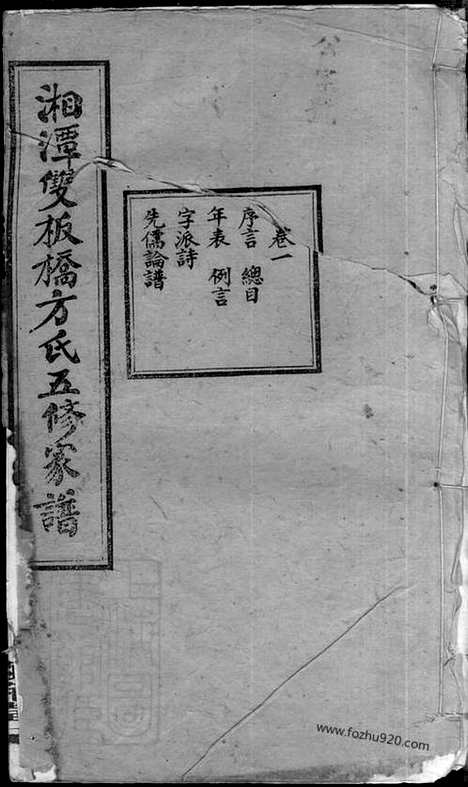 湘潭雙板橋方氏五修家譜
卷一
序言 總目
年表 例言
字派詩
先儒論譜
www.fozhu920.com